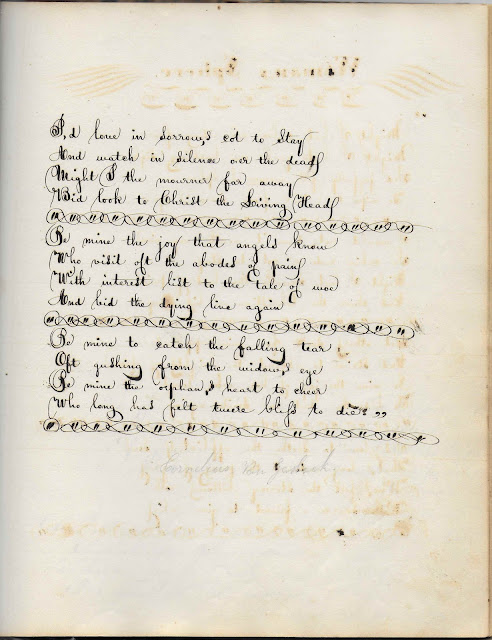 I,d love in sorrow,s cot to Stay
And watch in silence oer the dead
Might I the mourner far away
Bid look to Christ the Living Head
Be mine the joy that angels know
Who visit oft the abodes of pain
With interest list to the tale of woe
And bid the dying live again
Be mine to catch the falling tear
Oft gushing from the widow,s eye
Be mine the orphan,s heart to cheer
Who long has felt twere bliss to die ,,
Cornelius